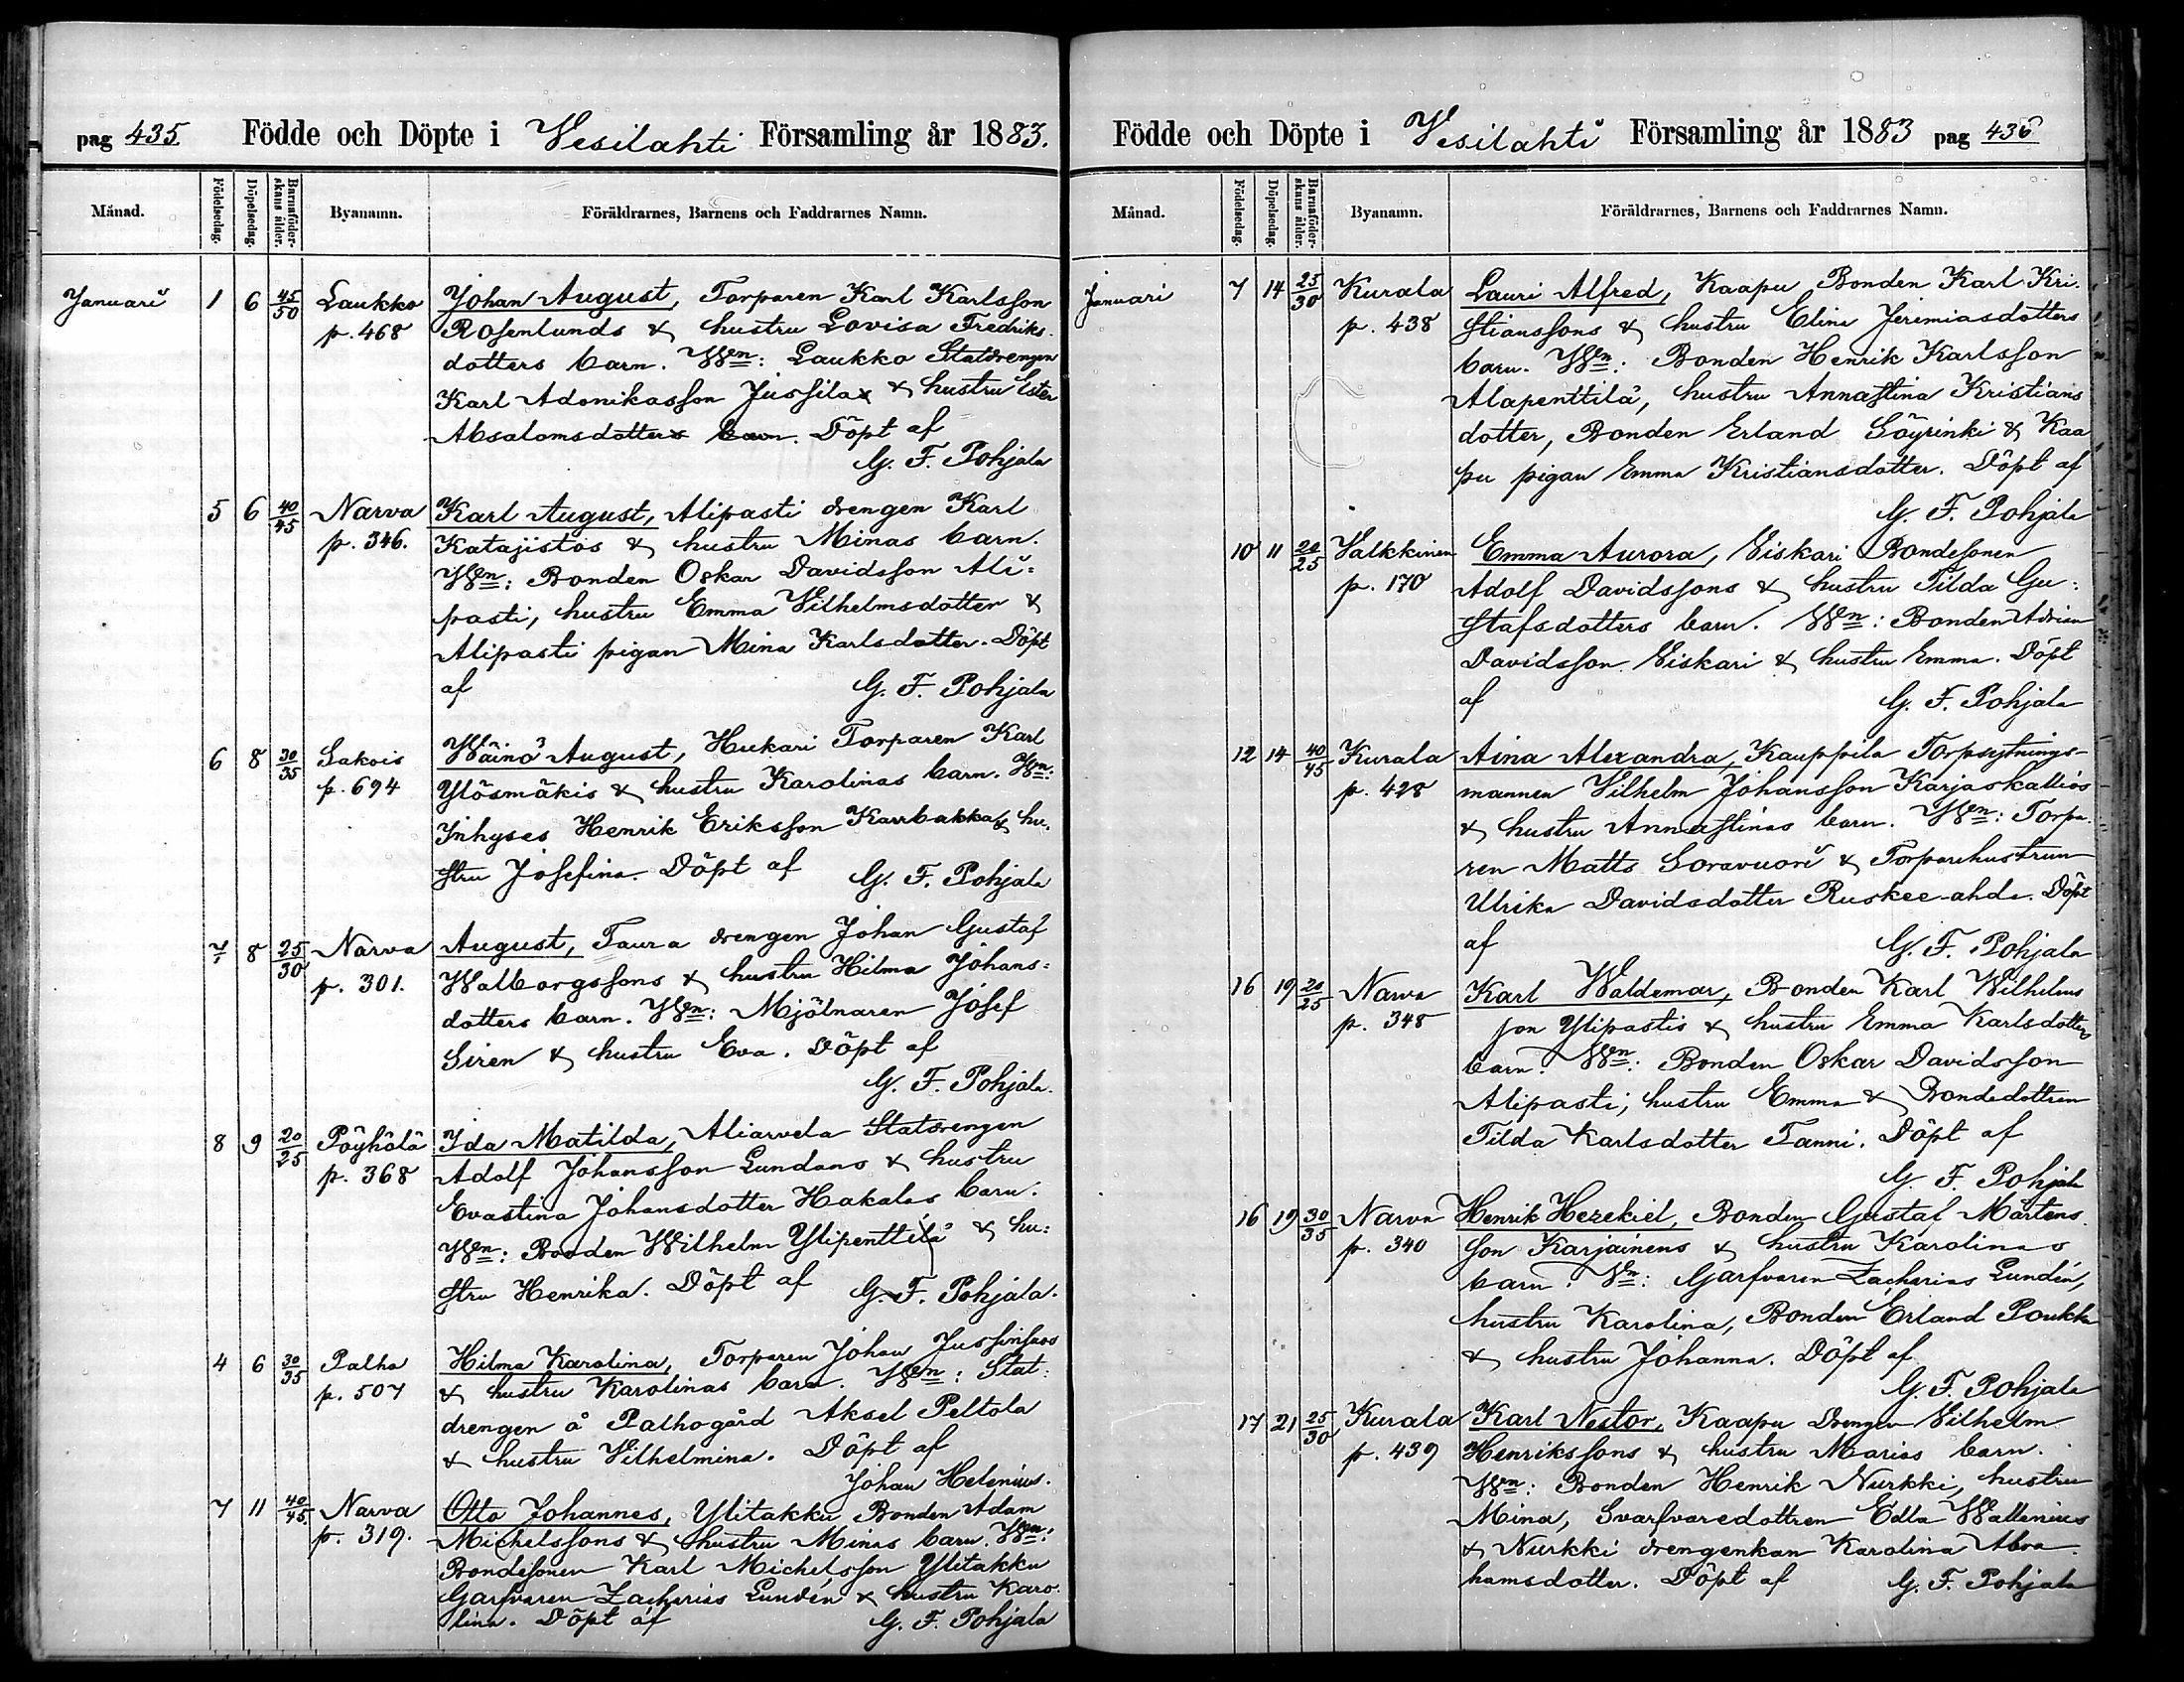 pag 435. Födde och Döpte i Vesilahti Församling år 1883.
Månad. Födelsedag. Döpelsedag. Barnaföderskans ålder. Byanamn. Föräldrarnes, Barnens och Faddrarnes Namn.
Januari 1 6 45/50 Laukko Johan August, Torparen Karl Karlsson
p. 468 Rosenlunds & hustru Lovisa Fredriks-
dotters barn. Wn: Laukko Statdrengen
Karl Adonikasson Jussila & hustru Ester
Absalomsdotter barn. Döpt af
G. F. Pohjala
5 6 40/45 Narva Karl August, Alipasti drengen Karl
p. 346. Katajistos & hustru Minas barn.
Wn: Bonden Oskar Davidsson Ali-
pasti, hustru Emma Vilhelmsdotter &
Alipasti pigan Mina Karlsdotter. Döpt
af G. F. Pohjala
6 8 30/35 Sakois Wäinö August, Hukari Torparen Karl
p. 694 Ylösmäkis & hustru Karolinas barn. Wn:
Inhyses Henrik Eriksson & hu-
stru Josefina. Döpt af G. F. Pohjala
7 8 25/30 Narva August, Taura drengen Johan Gustaf
p. 301. Walborgssons & hustru Hilma Johans-
dotters barn. Wn: Mjölnaren Josef
Siren & hustru Eva. Döpt af
G. F. Pohjala.
8 9 20/25 Pöyhölä Ida Matilda, Aliarvela Statdrengen
p. 368 Adolf Johansson Lundans & hustru
Evastina Johansdotter Hakalas barn.
Wn: Bonden Wilhelm Ylipenttilä & hu-
stru Henrika. Döpt af G. F. Pohjala.
4 6 30/35 Palho Hilma Karolina, Torparen Johan
p. 507 & hustru Karolinas barn. Wn: Stat-
drengen å Palhogård Aksel Peltola
& hustru Vilhelmina. Döpt af
Johan Helenius.
7 11 40/45. Narva Otto Johannes, Ylitakku Bonden Adam
p. 319. Michelssons & hustru Minas barn. Wn:
Bondesonen Karl Michelsson Ylitakku
Garfvaren Zacharias Lundén & hustru Karo-
lina. Döpt af G. F. Pohjala
Födde och Döpte i Vesilahti Församling år 1883 pag 436
Månad. Födelsedag. Döpelsedag. Barnaföderskans ålder. Byanamn. Föräldrarnes, Barnens och Faddrarnes Namn.
Januari 7 14 25/30 Kurala Lauri Alfred, Kaapu Bonden Karl Kri-
p. 438 stianssons & hustru Elina Jeremiasdotters
barn. Wn: Bonden Henrik Karlsson
Alapenttilä, hustru Annastina Kristians
dotter, Bonden Erland Söyrinki & Kaa
pu pigan Emma Kristiansdotter. Döpt af
G. F. Pohjala
10 11 20/25 Valkkinen Emma Aurora, Eiskari Bondesonen
p. 170 Adolf Davidssons & hustru Tilda Gu-
stafsdotters barn. Wn: Bonden Adrian
Davidsson Eiskari & hustru Emma. Döpt
af G. F. Pohjala
12 14 40/45 Kurala Aina Alexandra, Kauppila Torpsytnings-
p. 428 mannen Vilhelm Johansson Karjaskallios
& hustru Annastinas barn. Wn: Torpa-
ren Matts Soravuori & Torparehustrun
Ulrika Davidsdotter Ruskee-ahde. Döpt
af G. F. Pohjala
16 19 20/25 Narva Karl Waldemar, Bonden Karl Wilhelms
p. 348 son Ylipastis & hustru Emma Karlsdotters
barn. Wn: Bonden Oskar Davidsson
Alipasti, hustru Emma & Bondedottren
Tilda Karlsdotter Tanni. Döpt af
G. F. Pohjala
16 19 30/35 Narva Henrik Hezekiel, Bonden Gustaf Mårtens
p. 340 son Karjainens & hustru Karolinas
barn: Wn: Garfvaren Zacharias Lundén,
hustru Karolina, Bonden Erland Poukka
& hustru Johanna. Döpt af
G. F. Pohjala
17 21 25/30 Kurala Karl Nestor, Kaapu drengen Vilhelm
p. 439 Henrikssons & hustru Marias barn.
Wn: Bonden Henrik Nurkki, hustru
Mina, Svarfvaredottren Edla Wallenius
& Nurkki drengenkan Karolina Abra-
hamsdotter. Döpt af G. F. Pohjala